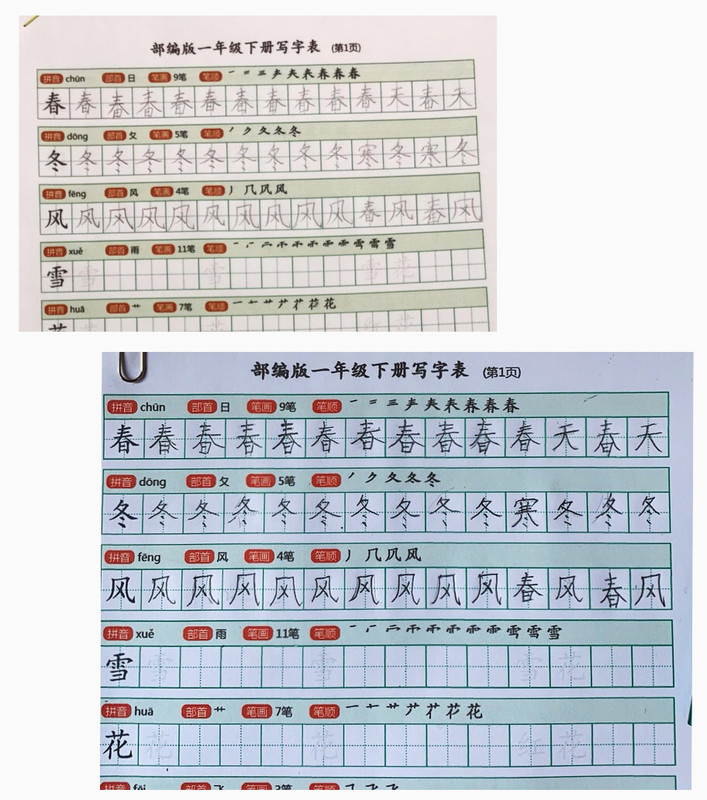 部编版一年级下册写字表 (第1页)
拼音 chūn 部首 日 笔画 9笔 笔顺 一 二 三 𡗗 夫 表 春 春 春
春 春 春 春 春 春 春 春 春 春 春 天 春 天
拼音 dōng 部首 夂 笔画 5笔 笔顺 丿 ク 夂 冬 冬
冬 冬 冬 冬 冬 冬 冬 冬 冬 冬 寒 冬 寒 冬
拼音 fēng 部首 风 笔画 4笔 笔顺 丿 几 风 风
风 风 风 风 风 风 风 风 风 风 春 风 春 风
拼音 xuě 部首 雨 笔画 11笔 笔顺 雪 雪
雪 雪 雪 雪 花
拼音 huā 部首 艹 笔画 7笔 笔顺 一 十 艹 花
部编版一年级下册写字表 (第1页)
拼音 chūn 部首 日 笔画 9笔 笔顺 一 二 三 春 春 春
春 春 春 春 春 春 春 春 春 春 春 天 春 天
拼音 dōng 部首 夂 笔画 5笔 笔顺 丿 ク 夂 冬 冬
冬 冬 冬 冬 冬 冬 冬 冬 冬 冬 寒 冬 冬 冬
拼音 fēng 部首 风 笔画 4笔 笔顺 丿 几 风 风
风 风 风 风 风 风 风 风 风 风 春 风 春 风
拼音 xuě 部首 雨 笔画 11笔 笔顺 雪 雪
雪 雪 雪 雪 花
拼音 huā 部首 艹 笔画 7笔 笔顺 一 十 艹 花
花 花 花 红 花
拼音 fēi 部首 飞 笔画 3笔 笔顺